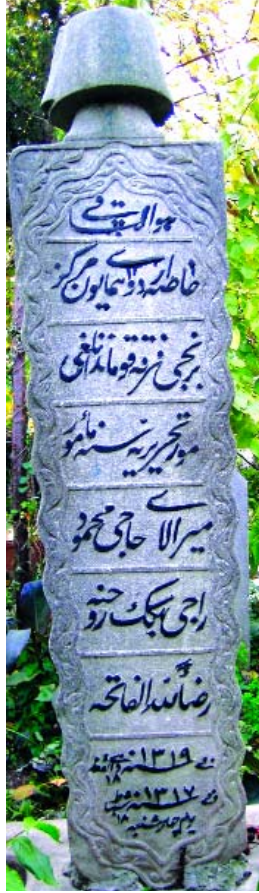 هو الباقی
خاصه اردوی همایون مرکز
برنجی فرقه قوماندانلغی
امور تحریریه سنه مأمور
میرالای حاجی محمود
راجی بکک روحنه
رضاءً لله الفاتحه
فی ١٣١٩ سنه ١٨
فی ١٣١٧ سنه ١٨
یوم چهارشنبه